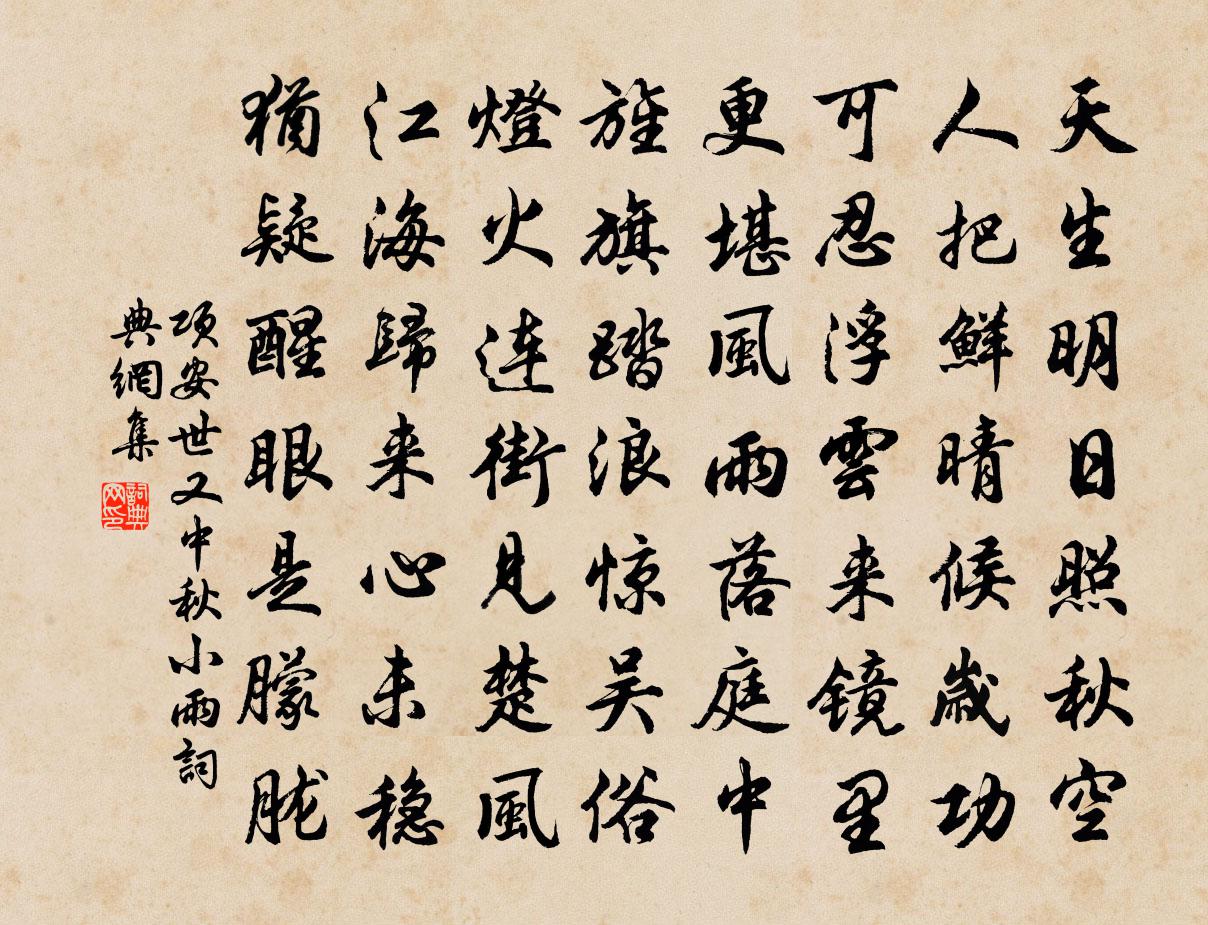 天生明日照秋空
人把鮮晴候歲功
可忍浮雲来镜里
更堪風雨落庭中
旌旗踏浪惊吴俗
燈火连街見楚風
江海歸来心未穏
猶疑醒眼是朦胧
项安世又中秋小雨詞
典網集
詞典网印